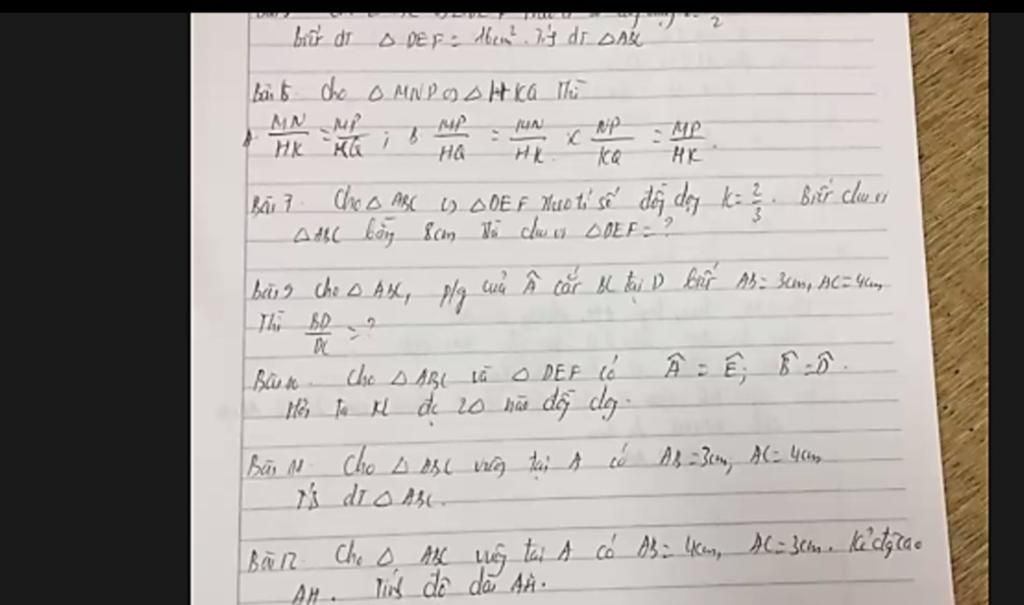 biết dt △ DEF = 16cm². Tính dt △ABC
Bài 5. Cho △ MNP ∽ △ HKQ Thì
A. MN/HK = MP/HQ ; B MP/HQ = MN/HK x NP/KQ = MP/HK.
Bài 7. Cho △ ABC ∽ △DEF theo tỉ số đồng dạng K = 2/3. Biết chu vi
△ABC bằng 8cm thì chu vi △DEF = ?
Bài 9 Cho △ ABC, p/g của Â cắt BC tại D biết AB = 3cm, AC = 4cm,
Thì BD/DC = ?
Bài 10. Cho △ ABC và △ DEF có Â = Ê; B̂ = D̂.
Hỏi ta KL đc 2△ nào đồng dạng.
Bài 11. Cho △ ABC vuông tại A có AB = 3cm, AC = 4cm
Tính dt △ ABC.
Bài 12. Cho △ ABC vuông tại A có AB = 4cm, AC = 3cm. Kẻ đg cao
AH. Tính độ dài AH.